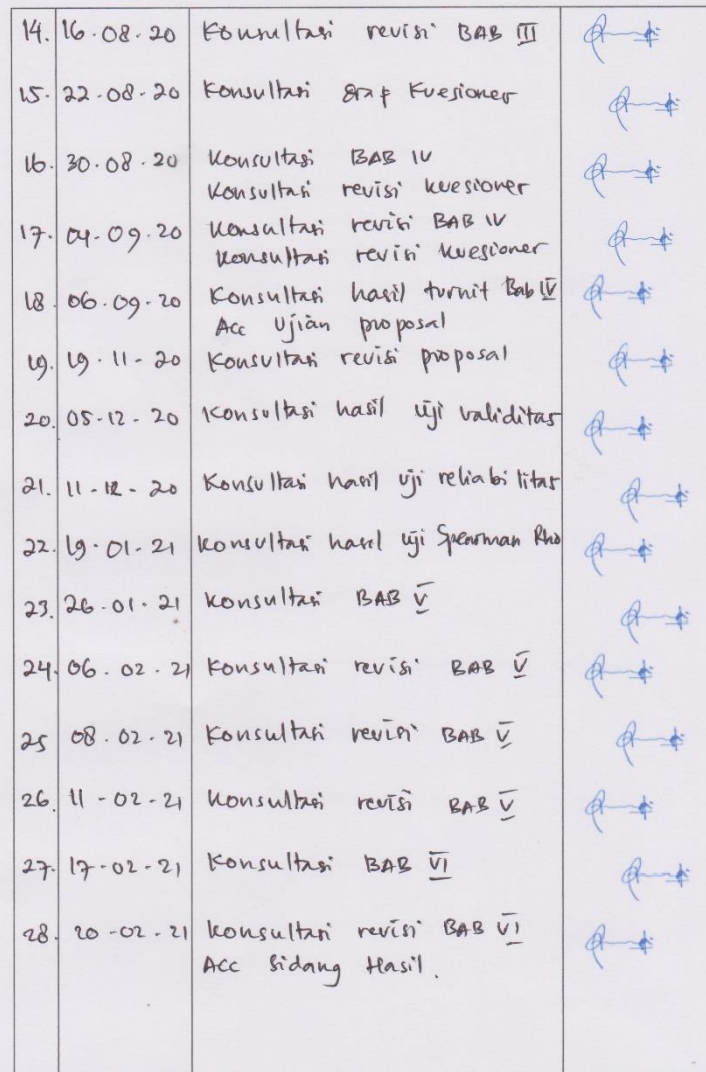 14. 16-08-20 Konsultasi revisi BAB III
15. 22-08-20 Konsultasi Kuesioner
16. 30-08-20 Konsultasi BAB IV
Konsultasi revisi kuesioner
17. 04-09-20 Konsultasi revisi BAB IV
Konsultasi revisi kuesioner
18 06-09-20 Konsultasi hasil turnit Bab IV
Acc Ujian proposal
19. 19-11-20 Konsultasi revisi proposal
20. 05-12-20 Konsultasi hasil uji validitas
21. 11-12-20 Konsultasi hasil uji reliabilitas
22. 19-01-21 Konsultasi hasil uji Spearman Rho
23. 26-01-21 Konsultasi BAB V
24. 06-02-21 Konsultasi revisi BAB V
25 08-02-21 Konsultasi revisi BAB V
26. 11-02-21 Konsultasi revisi BAB V
27. 17-02-21 Konsultasi BAB VI
28. 20-02-21 Konsultasi revisi BAB VI
Acc Sidang Hasil.